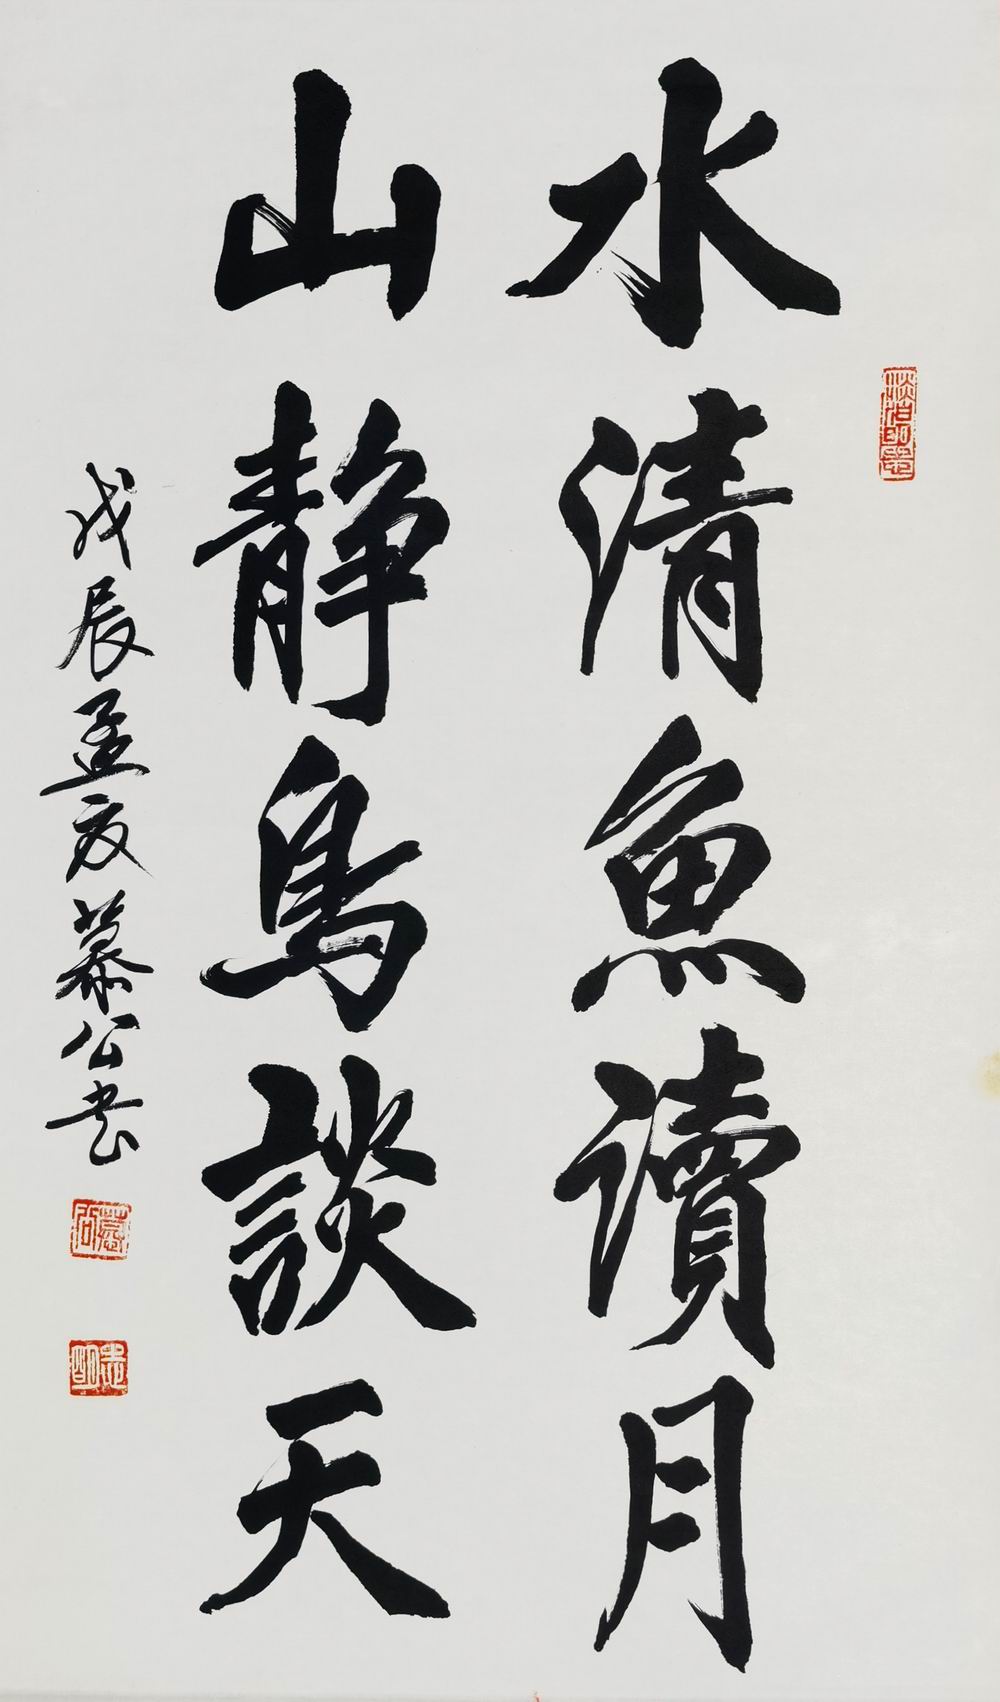 水清魚讀月
山靜鳥談天
戊辰孟夏慕公書